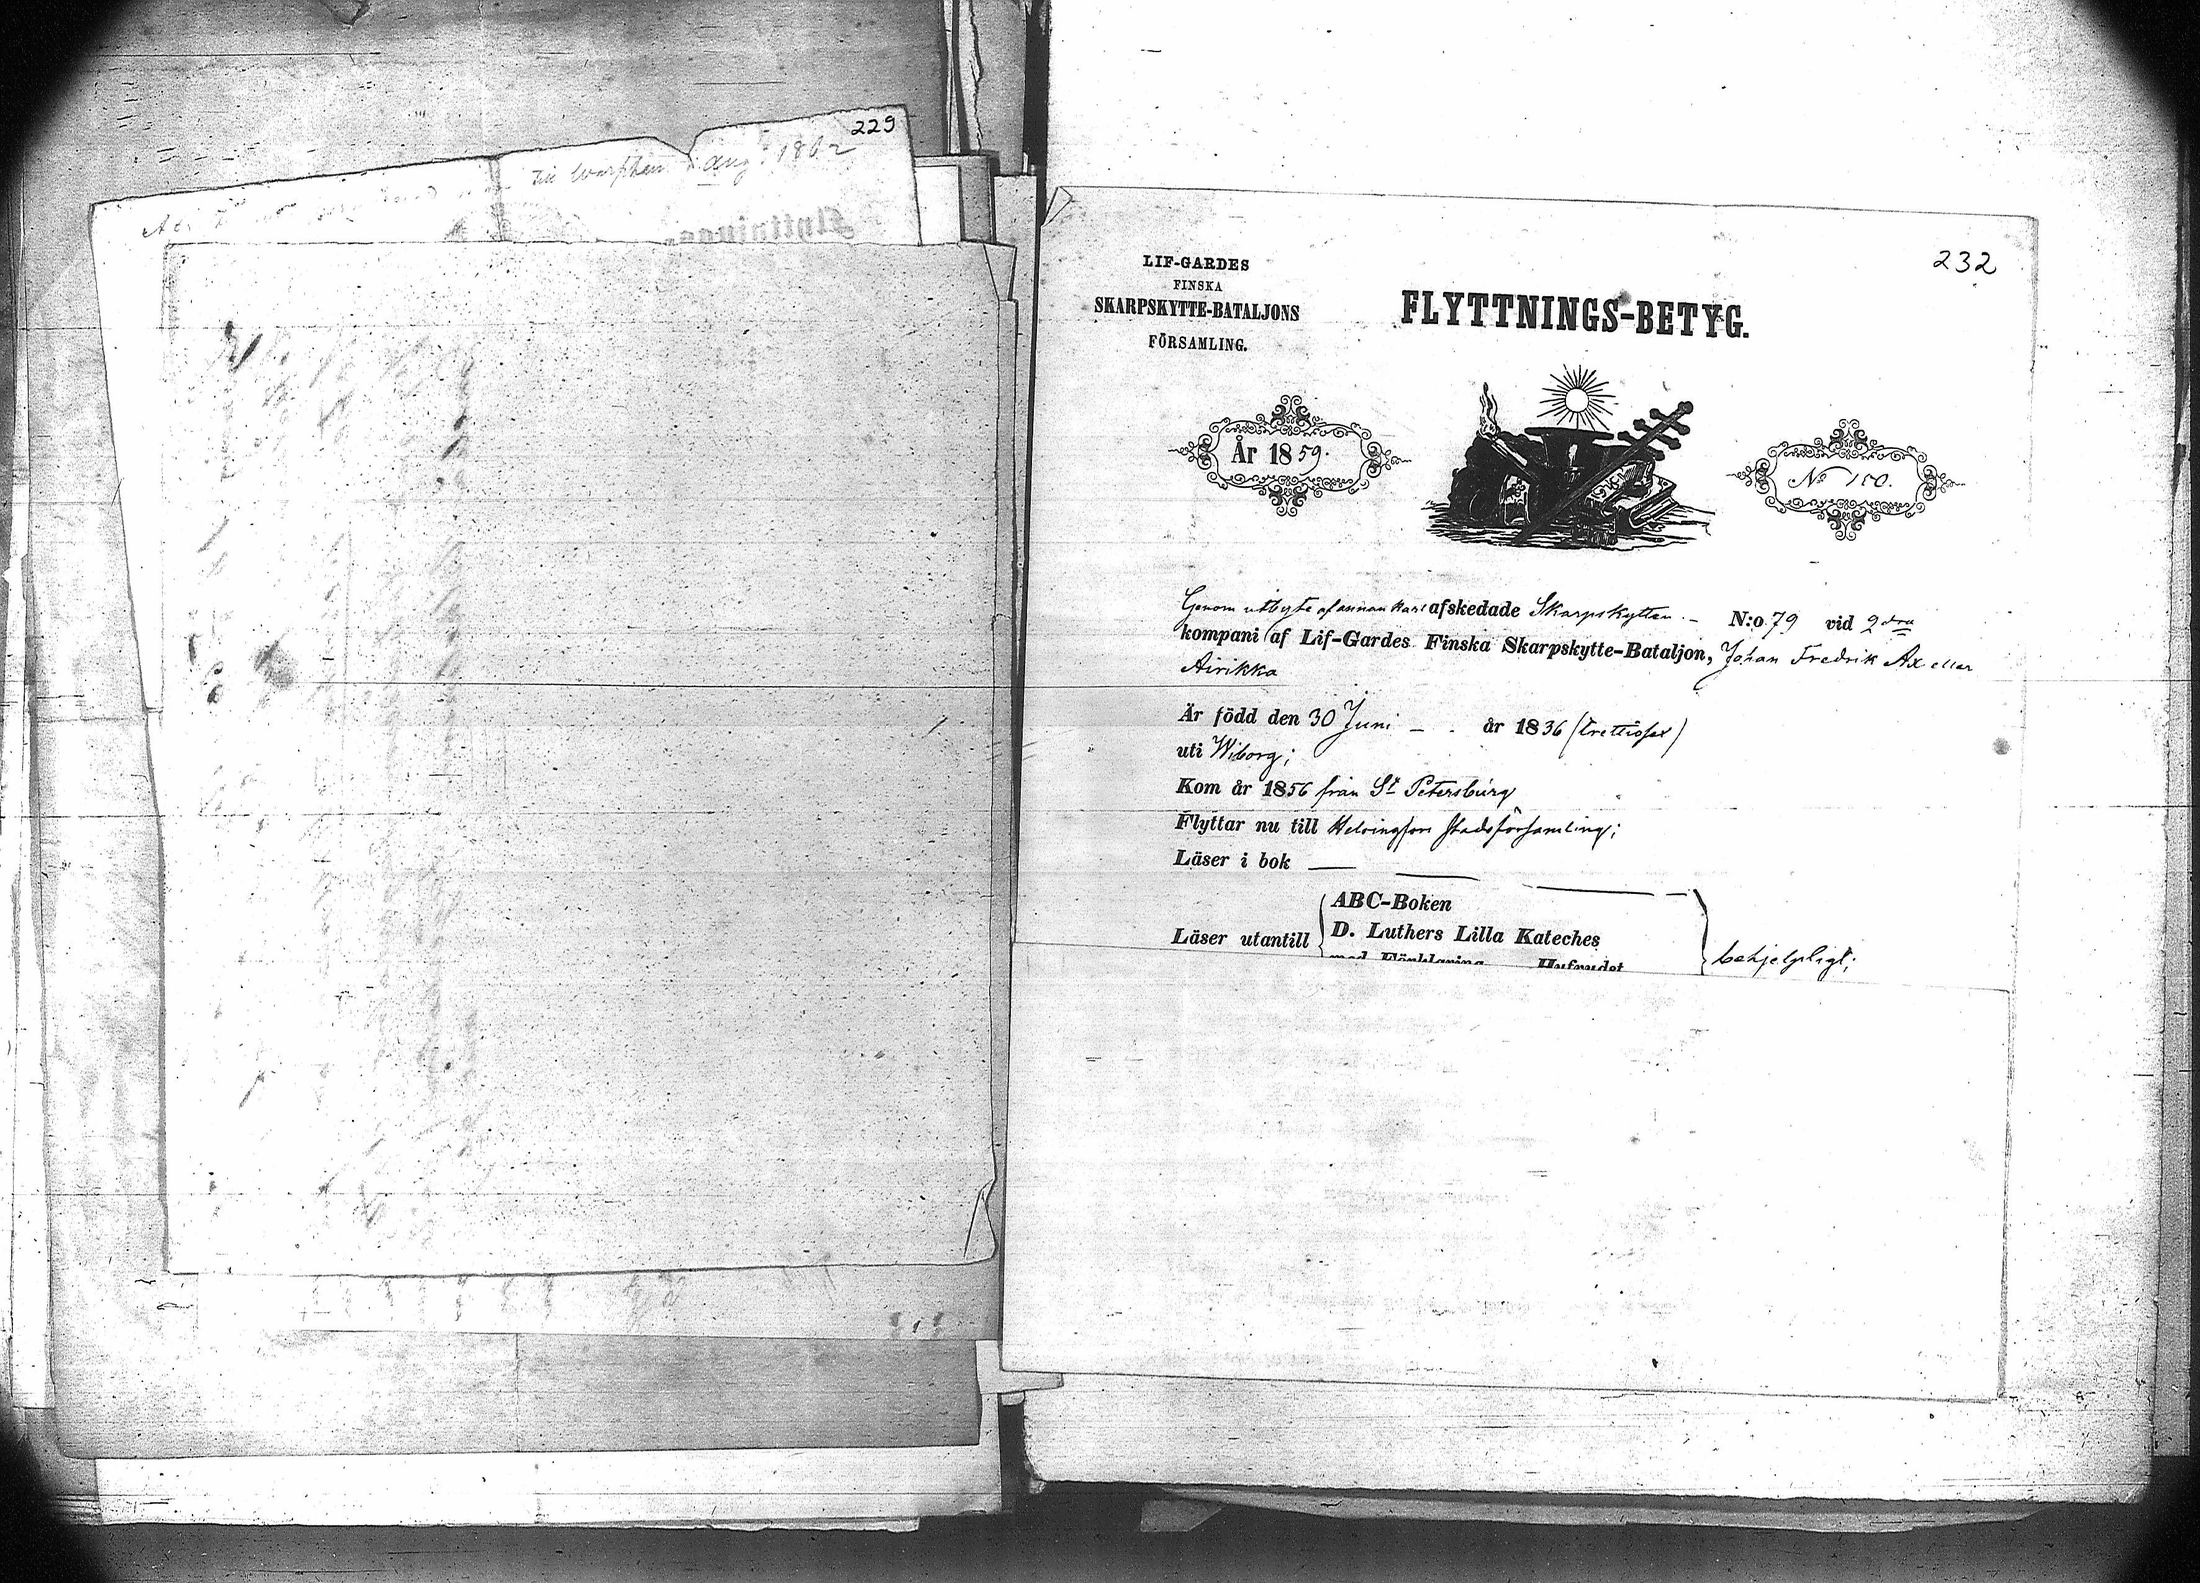 229
aug. 1862
232
LIF-GARDES
FINSKA
SKARPSKYTTE-BATALJONS
FÖRSAMLING.
FLYTTNINGS-BETYG.
År 1859.
No 150.
Genom utbyte af annan karl afskedade Skarpskytten - N:o 79 vid 2dra
kompani af Lif-Gardes Finska Skarpskytte-Bataljon, Johan Fredrik Ax eller
Airikka
Är född den 30 Juni - år 1836 (trettiosex)
uti Wiborg;
Kom år 1856 från St Petersburg
Flyttar nu till Helsingfors stadsförsamling;
Läser i bok —
Läser utantill
ABC-Boken
D. Luthers Lilla Kateches
med Förklaring Hufvudst
behjelpligt;